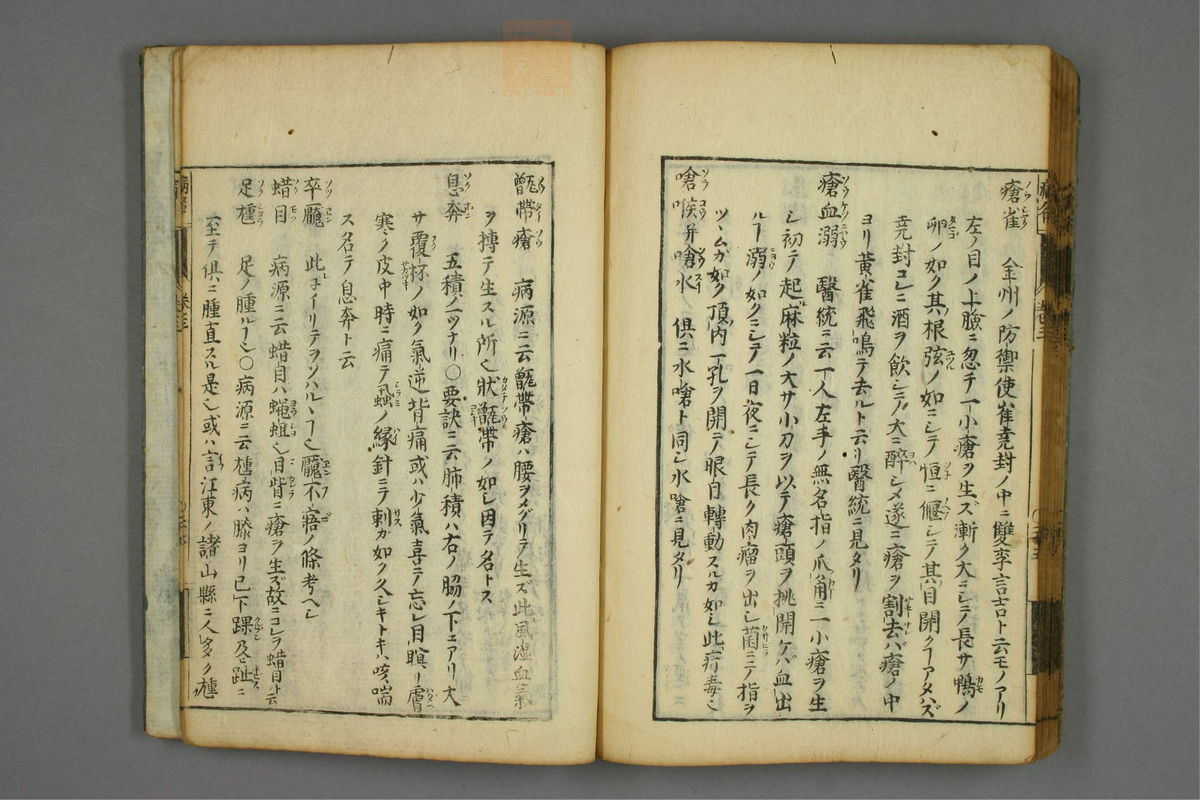 瘡雀 金州ノ防禦使崔堯封ノ中ニ雙李言吉ト云モノアリ
左ノ目ノ上瞼ニ忽チ一小瘡ヲ生ズ漸ク大ニシテ長サ鴨ノ
卵ノ如ク其根弦ノ如ニシテ恒ニ偃シテ其目開クヿアタハズ
堯封コレニ酒ヲ飲シテ大ニ醉シメ遂ニ瘡ヲ割去バ瘡ノ中
ヨリ黃雀飛鳴テ去ルト云リ醫統ニ見タリ
瘡血溺 醫統ニ云一人左手ノ無名指ノ爪角ニ一小瘡ヲ生
シ初テ起麻粒ノ大サ小刀ヲ以テ瘡頭ヲ挑開ケバ血出
ルヿ溺ノ如クニシテ一日夜ニシテ長ク肉瘤ヲ出シ菌ニテ指ヲ
ツヽムガ如ク頂内一孔ヲ開テ眼目轉動スルガ如シ此疔毒也
嗆喉并嗆水 俱ニ水嗆ト同シ水嗆ニ見タリ
甑帶瘡 病源ニ云甑帶瘡ハ腰ヲメグリテ生ズ此風湿血氣
ヲ搏テ生スル所也狀甑帶ノ如シ因テ名トス
息奔 五積ノ一ツナリ○要訣ニ云肺積ハ右ノ脇ノ下ニアリ大
サ覆杯ノ如ク氣逆背痛或ハ少氣喜ニテ忘レ目瞑リ膚
寒ク皮中時ニ痛テ蝨ノ縁針ニテ刺カ如ク久シキトキハ咳喘
ス名テ息奔ト云
卒魘 此子イリテヲソハルヽヿ也魘不寤ノ條考ヘシ
蜡目 病源ニ云蜡目ハ蝿蛆也目眥ニ瘡ヲ生ズ故ニコレヲ蜡目ト云
足尰 足ノ腫ルヽ也○病源ニ云尰病ハ膝ヨリ已下踝及ヒ趾ニ
至テ俱ニ腫直スル是也或ハ言江東ノ諸山縣ニ人多ク尰